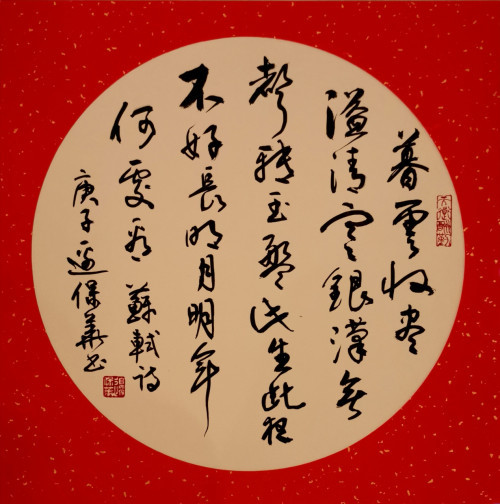 暮雲收尽
溢清寒銀漢無
聲轉玉盤此生此夜
不好長明月明年
何處看 蘇軾詩
庚子保華書